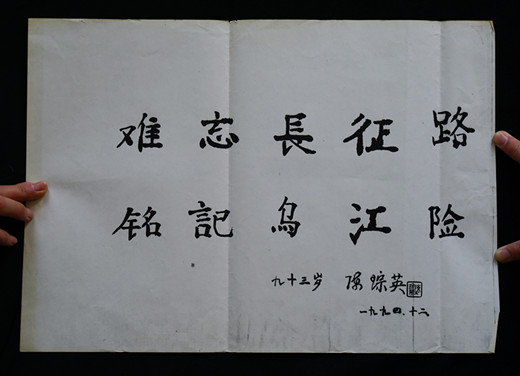 难忘長征路
铭記烏江险
九十三岁 陈琮英
一九九四.十二